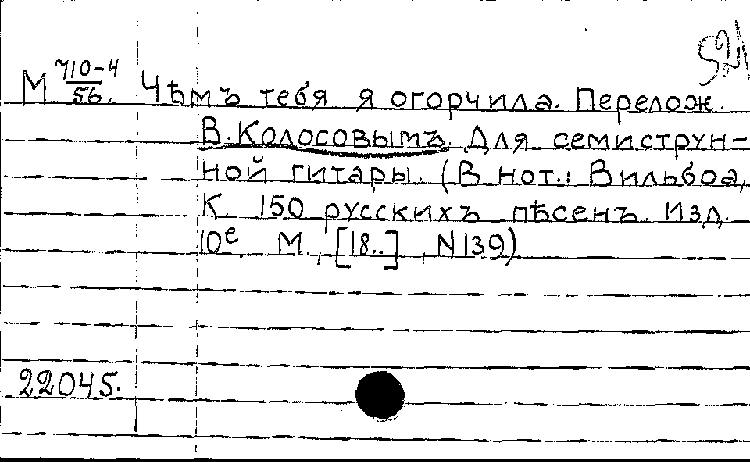 521
М 710-4/56. Чѣмъ тебя я огорчила. Перелож.
В. Колосовымъ. Для семиструн-
ной гитары. (В нот.: Вильбоа,
К. 150 русскихъ пѣсенъ. Изд.
10е. М., [18..], N139)
22045.